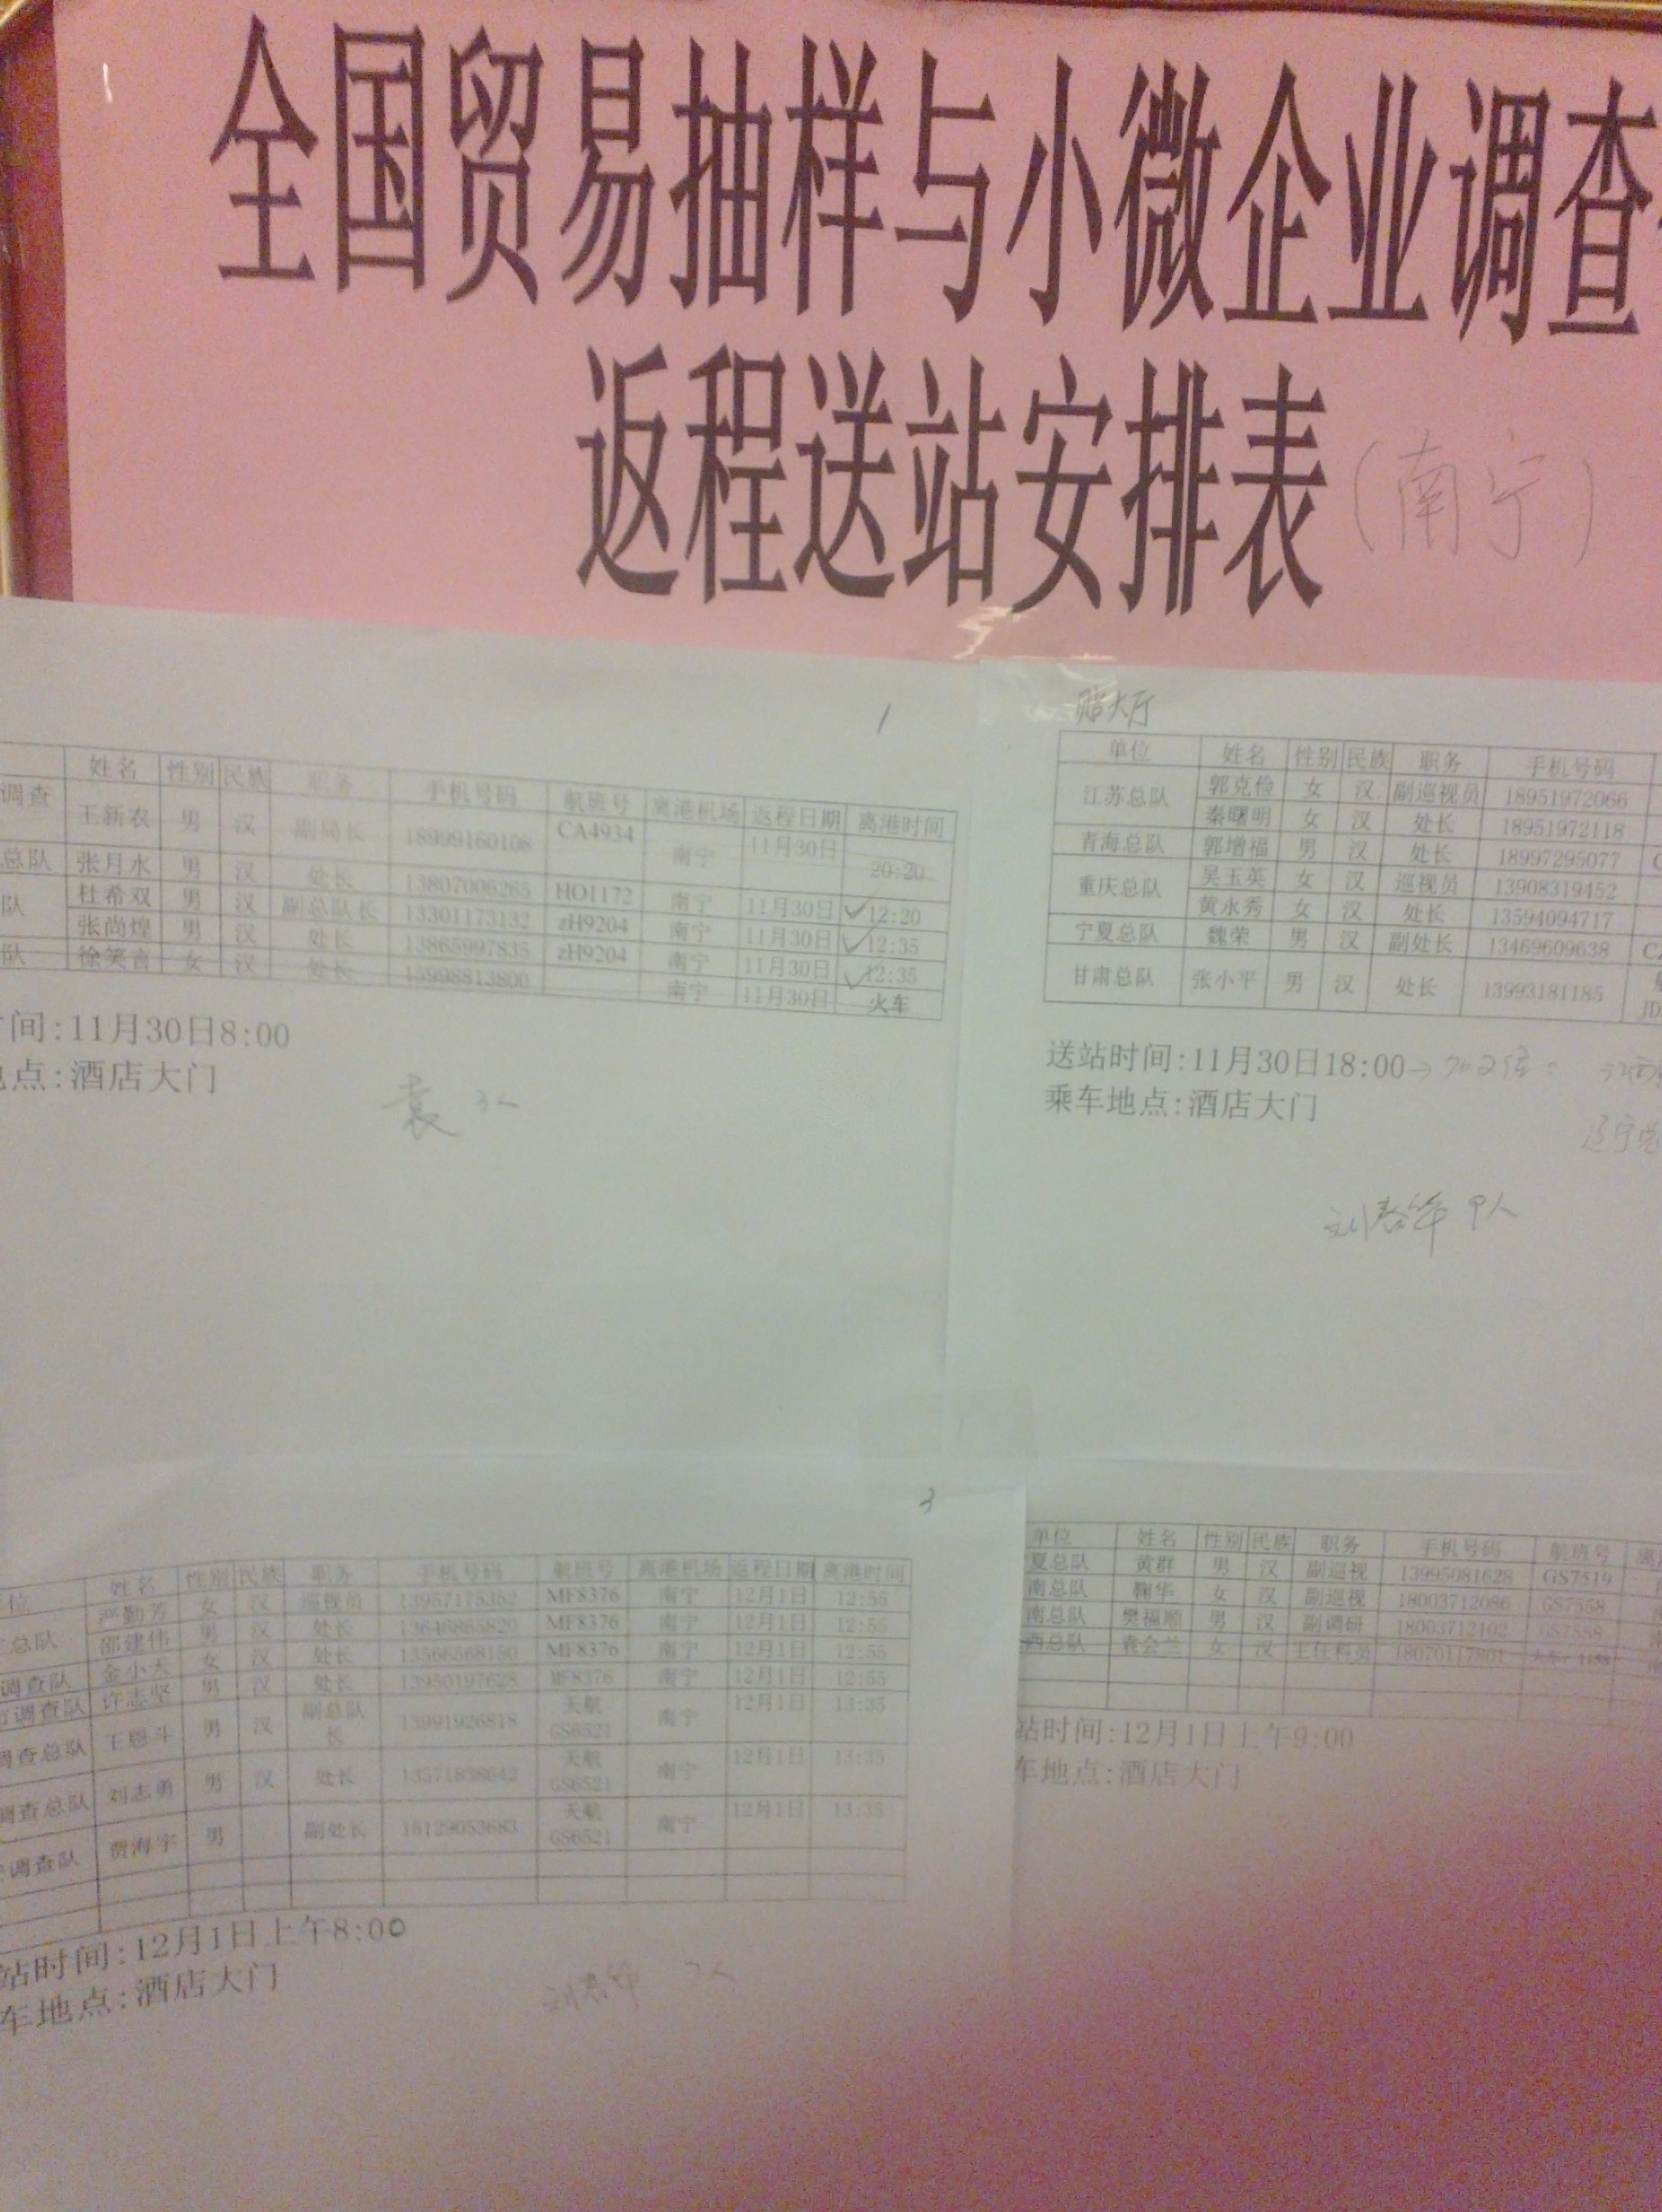 全国贸易抽样与小微企业调查
返程送站安排表(南宁)
1
姓名 性别 民族 职务 手机号码 航班号 离港机场 返程日期 离港时间
调查 王新农 男 汉 副局长 18999160108 CA4934 南宁 11月30日 20:20
总队 张月水 男 汉 处长 13807006265 HO1172 南宁 11月30日 12:20
队 杜希双 男 汉 副总队长 13301173132 zH9204 南宁 11月30日 12:35
张尚煌 男 汉 处长 13865997835 zH9204 南宁 11月30日 12:35
队 徐笑言 女 汉 处长 15998813800 南宁 11月30日 火车
间:11月30日8:00
点:酒店大门
袁 3人
贴大厅
单位 姓名 性别 民族 职务 手机号码
江苏总队 郭克俭 女 汉 副巡视员 18951972066
秦曙明 女 汉 处长 18951972118
青海总队 郭增福 男 汉 处长 18997295077
重庆总队 吴玉英 女 汉 巡视员 13908319452
黄永秀 女 汉 处长 13594094717
宁夏总队 魏荣 男 汉 副处长 13469609638
甘肃总队 张小平 男 汉 处长 13993181185 JD
送站时间:11月30日18:00→
乘车地点:酒店大门
刘春华 9人
3
位 姓名 性别 民族 职务 手机号码 航班号 离港机场 返程日期 离港时间
总队 严勤芳 女 汉 巡视员 13957175352 MF8376 南宁 12月1日 12:55
邵建伟 男 汉 处长 13646865820 MF8376 南宁 12月1日 12:55
调查队 金小天 女 汉 处长 13566568180 MF8376 南宁 12月1日 12:55
调查队 许志坚 男 汉 处长 13950197628 MF8376 南宁 12月1日 12:55
调查总队 王恩斗 男 汉 副总队长 13991926818 天航 GS6521 南宁 12月1日 13:35
调查总队 刘志勇 男 汉 处长 13571838642 天航 GS6521 南宁 12月1日 13:35
调查队 贾海宇 男 副处长 15129053683 天航 GS6521 南宁 12月1日 13:35
站时间:12月1日上午8:00
车地点:酒店大门
刘春华 7人
单位 姓名 性别 民族 职务 手机号码 航班号
夏总队 黄群 男 汉 副巡视 13995081628 GS7519
南总队 鞠华 女 汉 副巡视 18003712086 GS7558
南总队 樊福顺 男 汉 副调研 18003712102 GS7558
西总队 袁会兰 女 汉 主任科员 18070117801
站时间:12月1日上午9:00
车地点:酒店大门